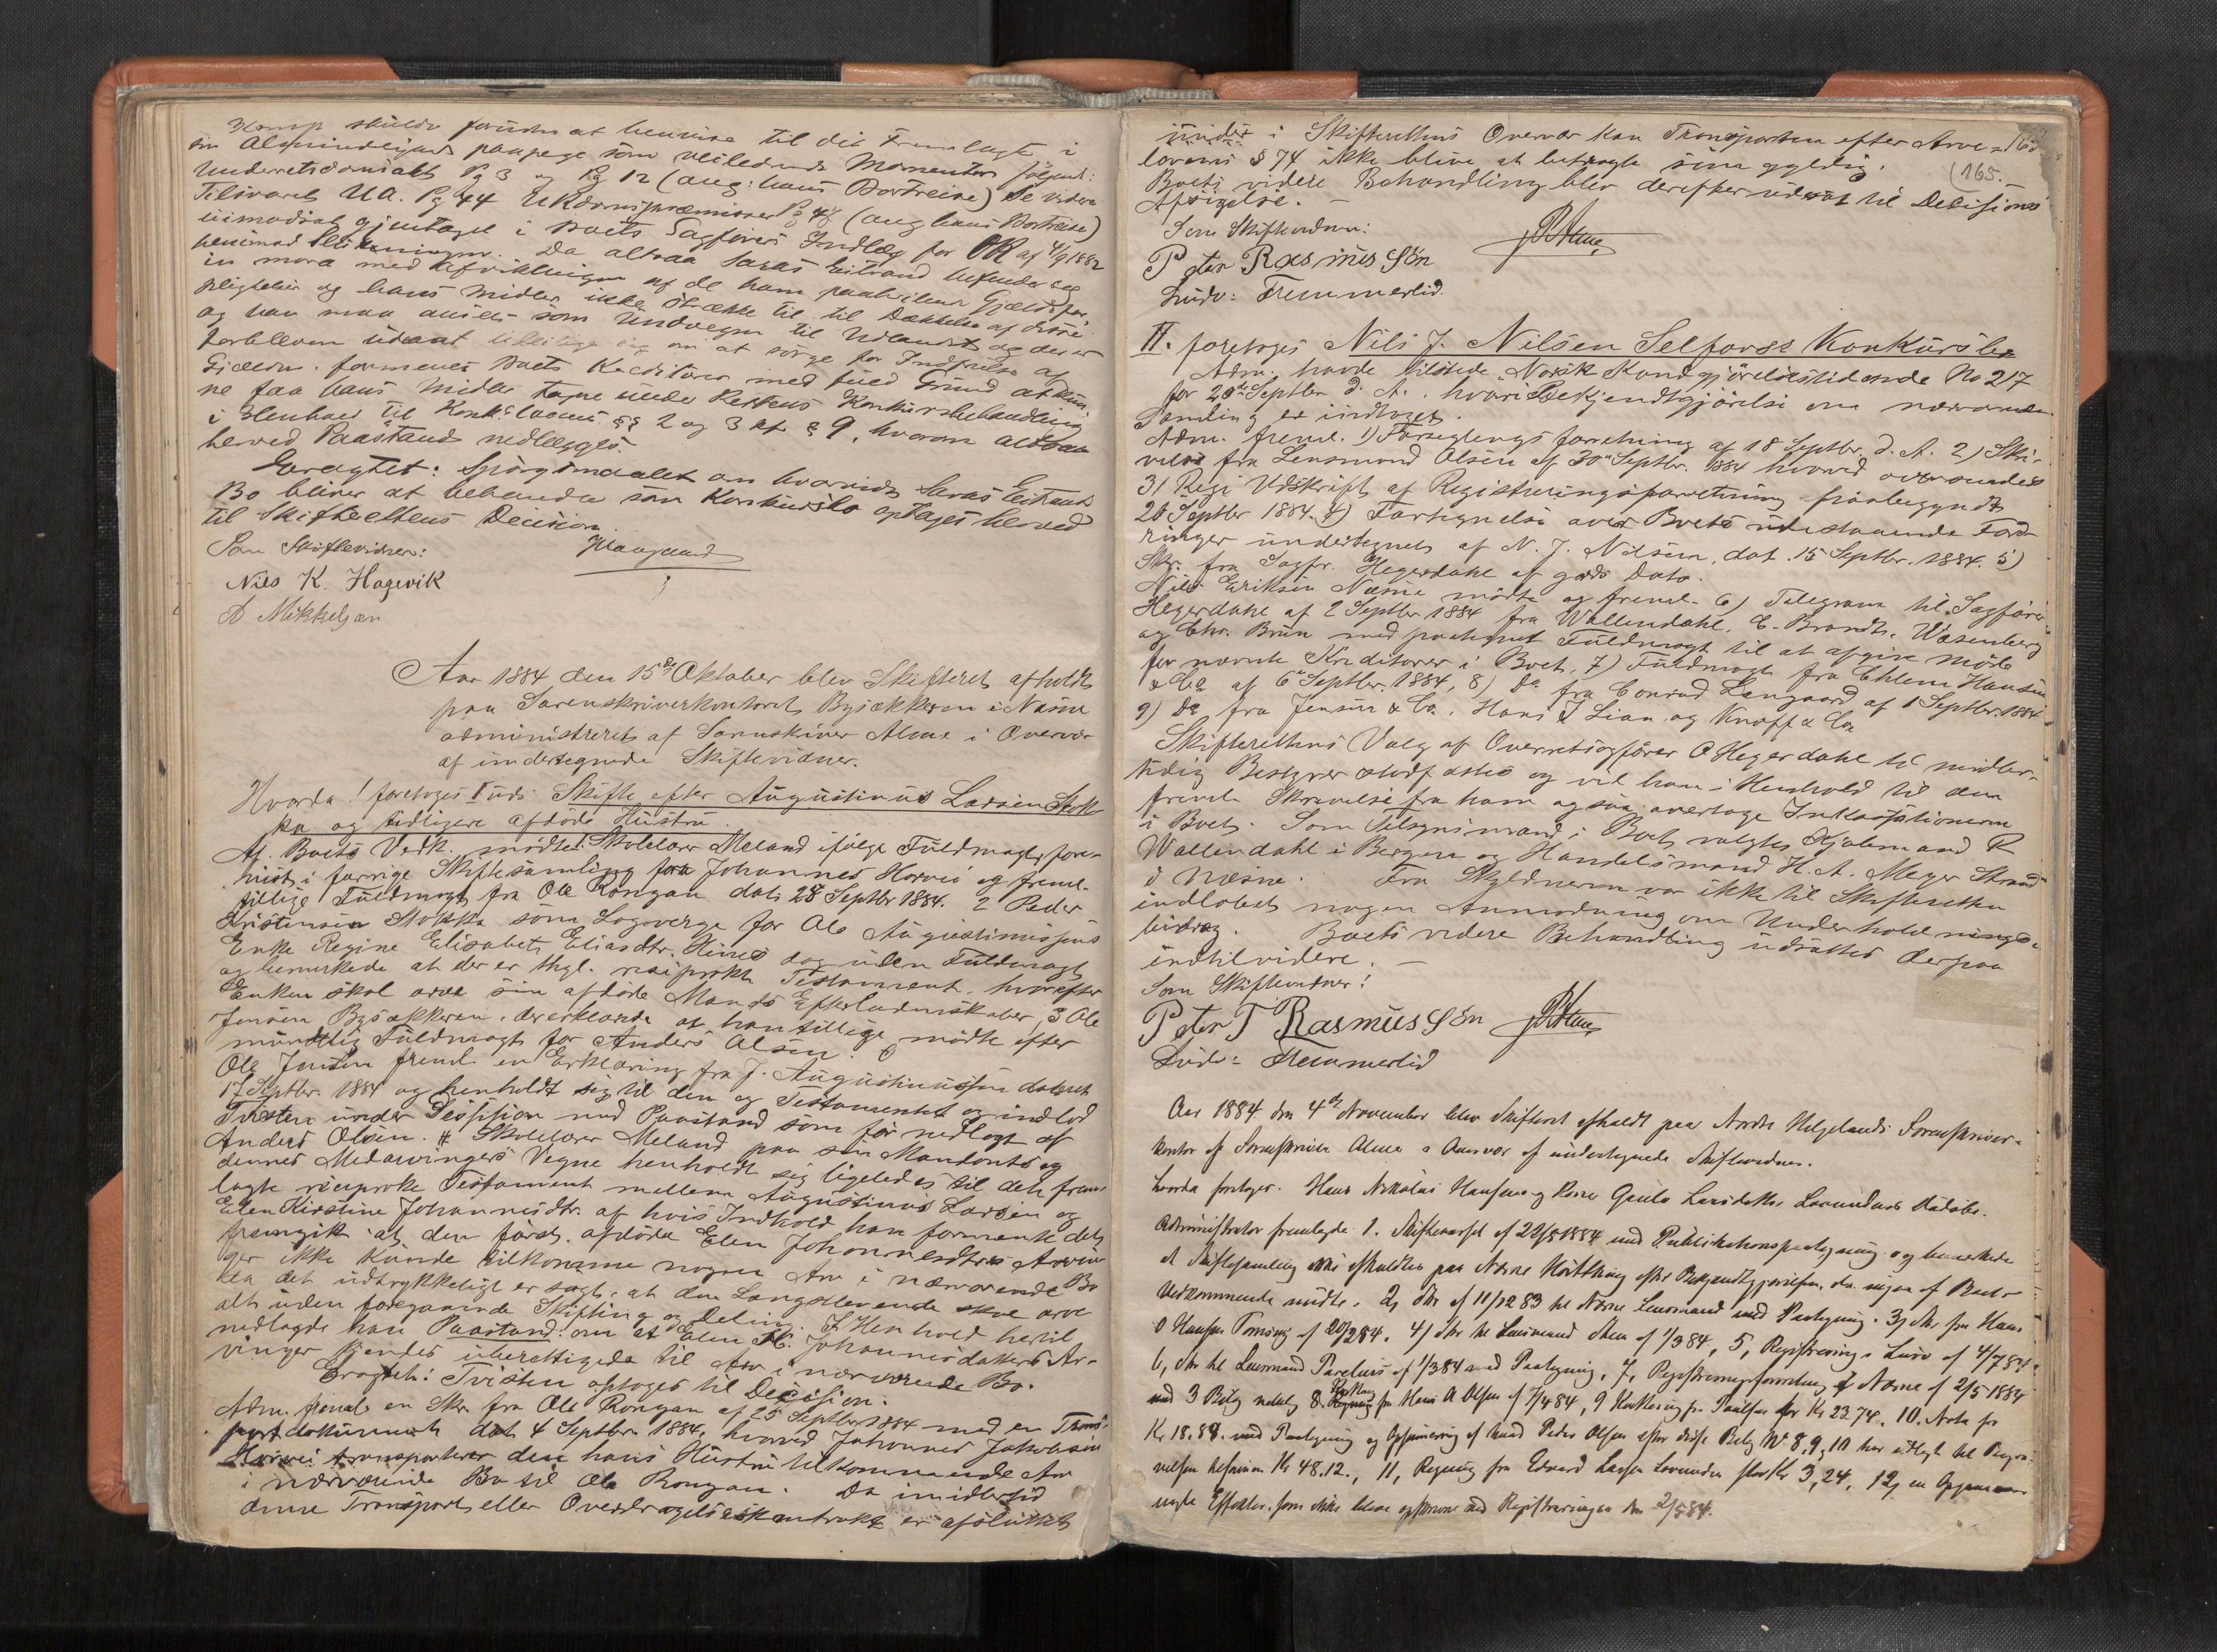 skulde foruden at henvise til det Fremlagte i
sin Almindelighed paapege som veiledende Momenter følgende:
Underretsdomsakt Pg 3 og Pg 12 (ang: hans Bortreise) Se videre
Tilsvaret UA. Pg 44 (ang hans Bortreise)
gjentaget i Boets Sagførers Indlæg for OR af 4/9 1882
Da altsaa Saras Eitrand befinder sig
in mora med Afviklingen af de ham paahvilende Gjældsfor-
pligtelser og hans Midler ikke strække til til Dækkelse af disse
og han maa ansees som Undvegen til Udlandet og der er
forbleven uden at om at sørge for Indfrielse af
Gjælden. formener Boets Kreditorer med fuld Grund at kun-
ne faa hans Midler tagne under Rettens Konkursbehandling
i Henhold til Konk:lovens §§ 2 og 3 cf § 9, hvorom altsaa
herved Paastand nedlægges.
Eragtet: Spørgsmaalet om hvorvidt Saras Eitrands
Bo bliver at behandle som Konkursbo optages herved
til Skifterettens Decision.
Som Skiftevidner:
Nils K. Hagevik
A Mikkelsen
Aar 1884 den 15de Oktober blev Skifteret afholdt
paa Sorenskriverkontoret Bysækkeren i Næsne
administreret af Sorenskriver Alme i Overvær
af undertegnede Skiftevidner.
Hvorda! foretoges I uds Skifte efter Augustinus Larsen Stok-
ka og tidligere afdøde Hustru.
Af Boets Vedk. mødte: 1 Skolelærer Meland ifølge Fuldmagt fore-
vist i forrige Skiftesamling fra Johannes Horvei og freml.
tillige Fuldmagt fra Ole Rongan dat. 28 Septbr 1884. 2 Peder
Kristensen Stokka som Lagverge for Ole Augustinussens
Enke Regine Elisabet Eliasdtr. Hines dog uden Fuldmagt
og bemerkede at der er thgl. reciprokt Testament. hvorefter
Enken skal arve sin afdøde Mands Efterladenskaber, 3 Ole
Jensen Bysækkeren, der erklærede at han tillige mødte efter
mundtlig Fuldmagt for Anders Olsen.
Ole Jensen freml. en Erklæring fra J. Augustinussen dateret
17 Septbr. 1884 og henholdt sig til den og Testamentet og indlod
Tvisten under Decision med Paastand som før nedlagt af
Anders Olsen. # Skolelærer Meland paa sin Mandants og
dennes Medarvingers Vegne henholdt sig ligeledes til det frem-
lagte reciproke Testament mellem Augustinus Larsen og
Elen Kirstine Johannesdtr. af hvis Indhold han formente det
fremgik at den først afdøde Elen Johannesdtrs Arvin-
ger ikke kunde tilkomme nogen Arv i nærværende Bo
da det udtrykkeligt er sagt, at den Længstlevende skal arve
alt uden foregaaende Skifting og Deling. I Henhold hertil
nedlagde han Paastand om at Elen K. Johannesdatters Ar-
vinger kjendes uberettigede til Arv i nærværende Bo.
Eragtet: Tvisten optoges til Decision.
Adm. freml. en Skr. fra Ole Rongan af 25 Septbr 1884 med en Trans-
portdokument dat 4 Septbr. 1884, hvorved Johannes Jakobsen
Horvei transporterer den hans Hustru tilkommende Arv
i nærværende Bo til Ole Rongan. Da imidlertid
denne Transport eller Overdragelseskontrakt er afsluttet
165.
under i Skifterettens Overvær kan Transporten efter Arve-
lovens § 74 ikke blive at betragte som gyldig.
Boets videre Behandling blev derefter udsat til Decisions
Afsigelse. –
Som Skiftevidner:
Peter Rasmussøn
Ludv: Hemmerlid
II. foretoges Nils J. Nilsen Selfors's Konkursbo
Adm. havde tilstede Norsk Kundgjørelsestidende No 217
for 20de Septbr d. A., hvori Bekjendtgjørelse om nærværende
Samling er indtaget.
Adm. freml. 1) Forseglingsforretning af 18 Septbr. d. A. 2) Skri-
velse fra Lensmand Olsen af 30te Septbr. 1884 hvorved oversendes
3) Regi Udskrift af Registreringsforretning paabegyndt
20 Septbr 1884. 4) Fortegnelse over Boets udestaaende Ford-
ringer undertegnet af N. J. Nilsen, dat. 15 Septbr. 1884. 5)
Skr. fra Sagfr. Hegerdahl af gaars Dato.
Nils Eriksen Næsne mødte og freml. 6) Telegram til Sagfører
Hegerdahl af 2 Septbr 1884 fra Wallendahl, C. Brandt, Wesenberg
og Chr. Brun med paategnet Fuldmagt til at afgive Møde
for nævnte Kreditorer i Boet, 7) Fuldmagt fra Ehlem Hansen
& Co af 6te Septbr. 1884, 8) Do fra Conrad Langaard af 1 Septbr. 1884
9) Do fra Jensen & Co, Hans J Lian og Knoff & Co
Skifterettens Valg af Overretssagfører O Hegerdahl til midler-
tidig Bestyrer stadfæstes og vil han i Henhold til den
freml. Skrivelse fra ham ogsaa overtage Inkassationerne
i Boet. Som Tilsynsmænd i Boet valgtes Kjøbmand R
Wallendahl i Bergen og Handelsmand H. A. Meyer Strand
i Næsne. Fra Skyldneren var ikke til Skifteretten
indløbet nogen Anmodning om Underholdnings-
bidrag. Boets videre Behandling udsattes derpaa
indtilvidere. –
Som Skiftevidner!
Peter T Rasmussøn
Ludv: Hemmerlid
Aar 1884 den 4de November blev Skifteret afholdt paa Nordre Helgelands Sorenskriver-
kontor af Sorenskriver Alme i Overvær af undertegnede Skiftevidner.
Hvorda foretoges. Hans Nikolai Hansens og Kone Gurili Larsdatter Lovundens Dødsbo.
Administrator fremlagde 1. Skiftevarsel af 22/8 1884 med Publikationspaategning og bemerkede
at Skiftesamling ikke afholdtes paa Næsne Høstthing efter Bekjendtgjørelsen, da ingen af Boets
Vedkommende mødte. 2) Skr af 11/12 83 til Næsne Lensmand med Paategning. 3) Skr fra Hans
O Hansen Tonsvig af 20/2 84. 4) Skr til Lensmand Sten af 1/3 84, 5, Registrering i Lurø af 4/7 84
6, Skr til Lensmand Parelius af 1/3 84 med Paategning, 7, Registreringsforretning af Næsne af 2/5 1884
med 3 Bilag nemlig 8. Regning fra Hans A Olsen af 7/4 84, 9 Kvittering fra Paulsen for Kr 23.74. 10. Nota for
Kr. 18.88. med Paategning og Opsummering af hvad Peder Olsen efter disse Bilag No 8, 9, 10 har udlagt til Begra-
velsen tilsammen Kr 48.12., 11, Regning fra Edvard Larsen Lovunden stor Kr 3,24, 12,
nogle Effekter. som ikke blive opskrevne ved Registreringen den 2/5 84.